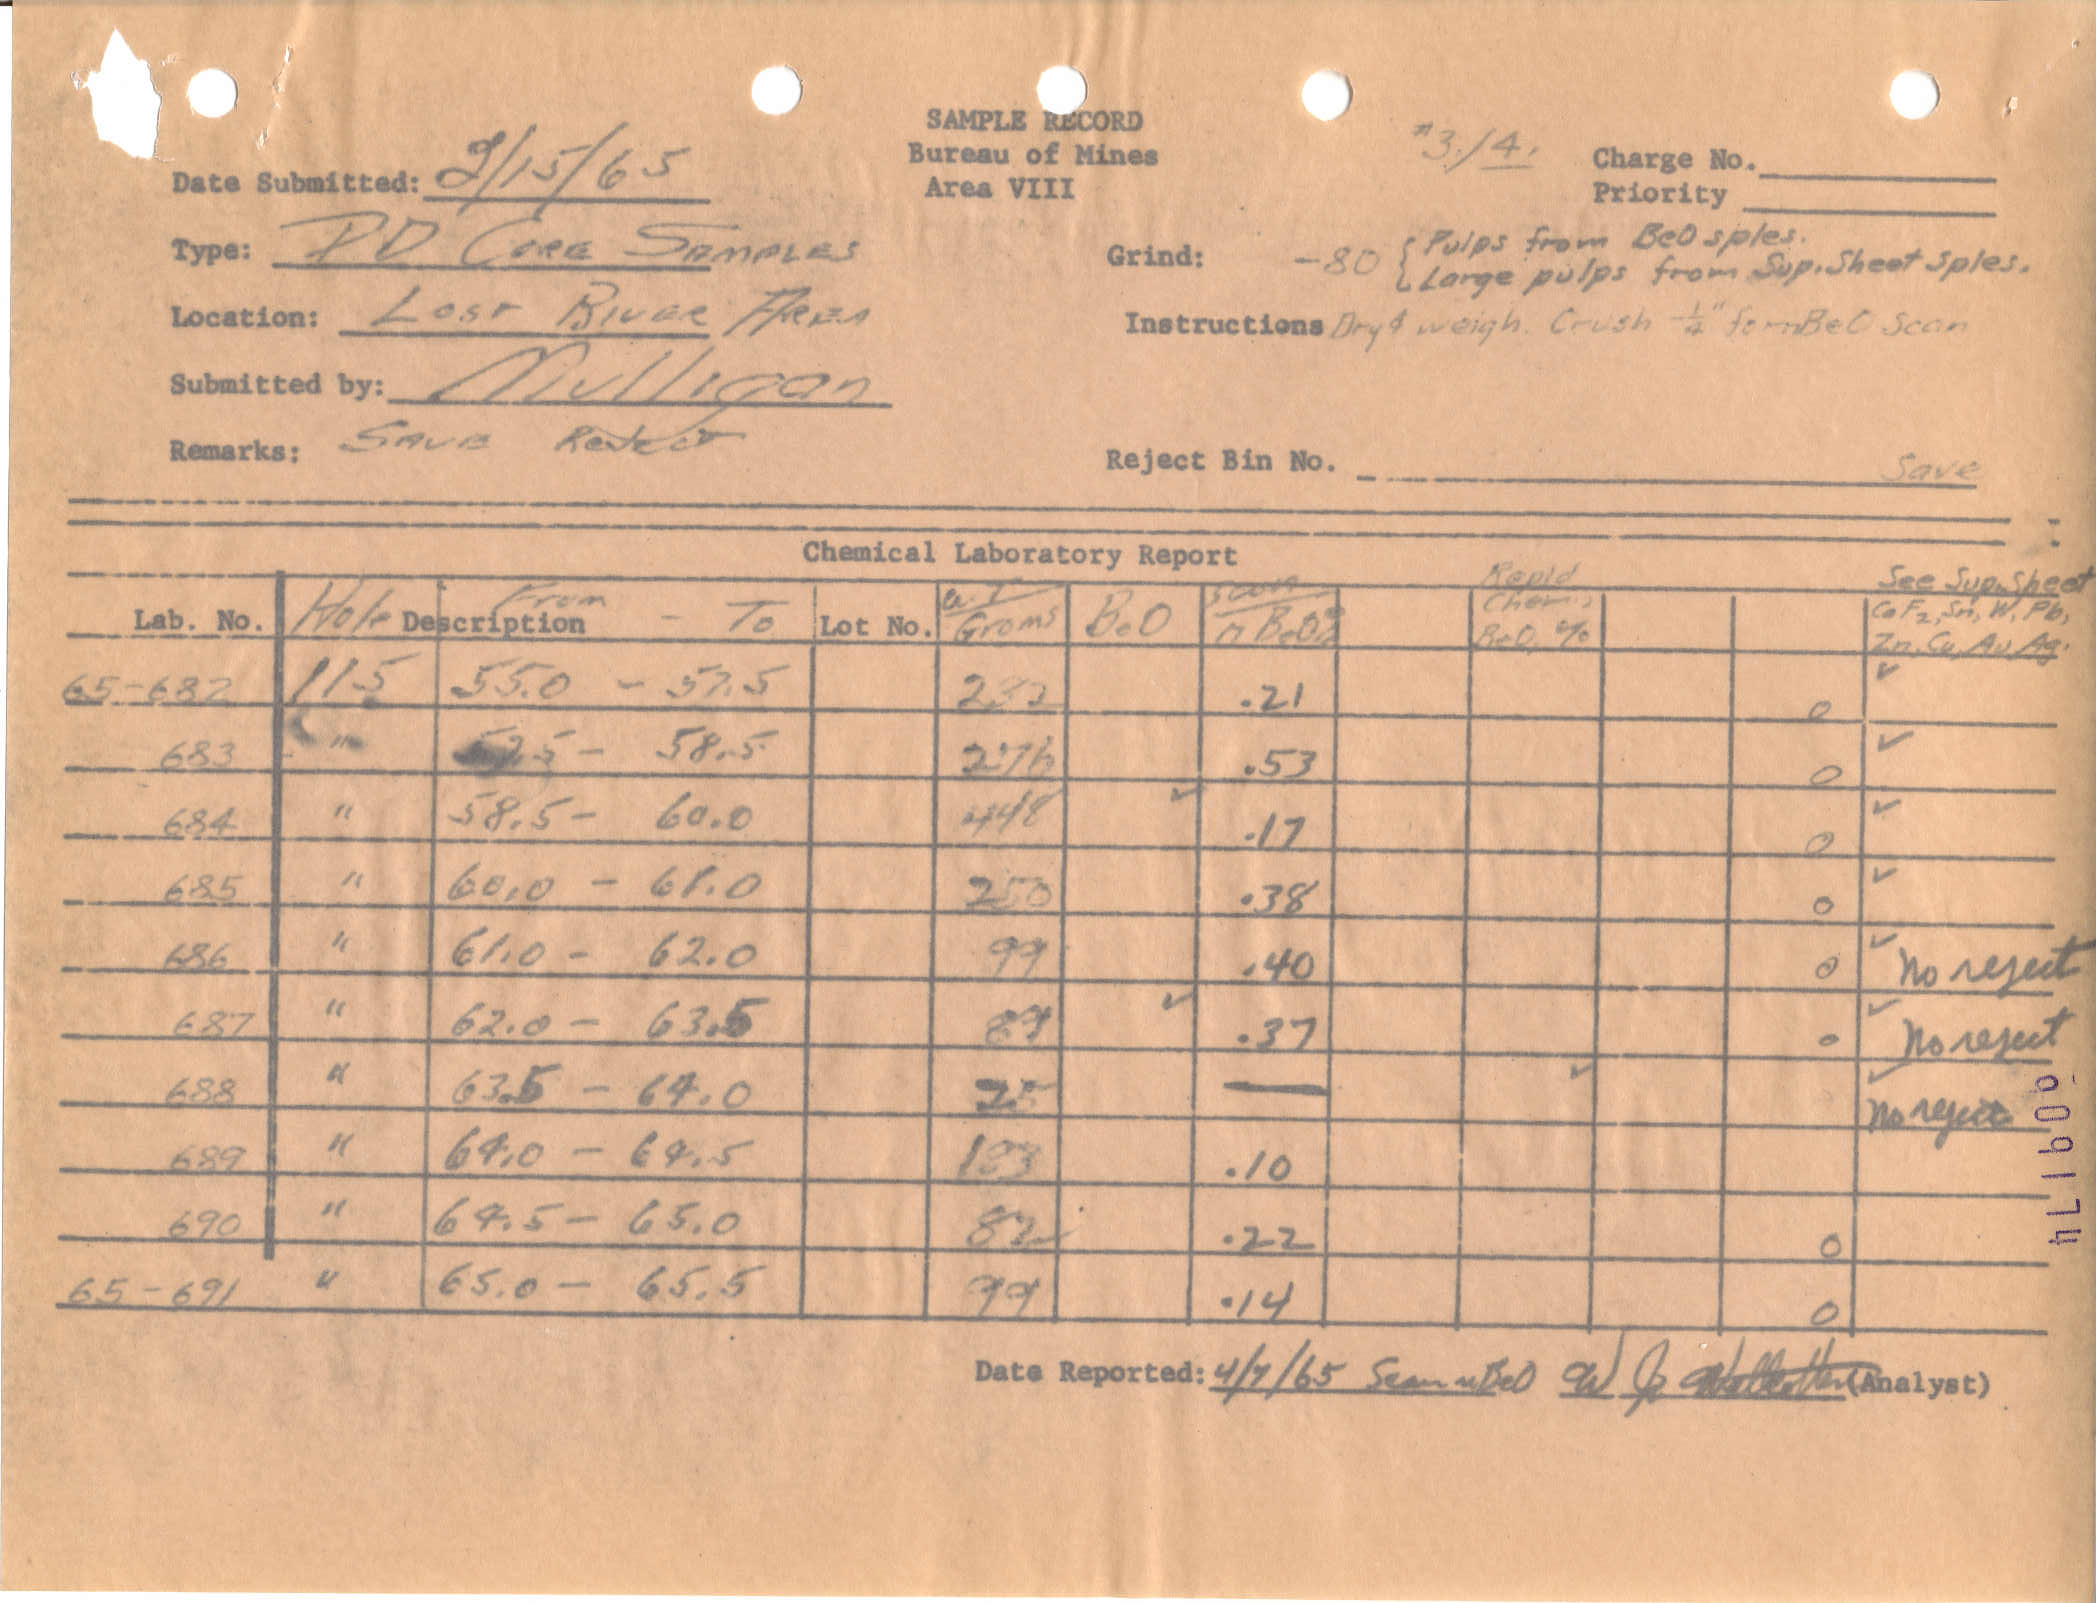 SAMPLE RECORD
Bureau of Mines
Area VIII
#3/4.
Charge No.
Priority
Date Submitted: 2/15/65
Type: DD Core Samples
Location: Lost River Area
Submitted by: Mulligan
Remarks: Save Reject
Grind: -80 { Pulps from BeO sples.
Large pulps from Sup. Sheet sples.
Instructions Dry & weigh. Crush -1/4" for nBeO Scan
Reject Bin No. Save
Chemical Laboratory Report
Lab. No. Hole Description From - To Lot No. Wt Grams BeO Scan n BeO% Rapid Chem. BeO, % See Sup. Sheet
CaF2, Sn, W, Pb,
Zn, Cu, Au, Ag.
65-682 115 55.0 - 57.5 232 .21 0 ✓
683 " 57.5 - 58.5 276 .53 0 ✓
684 " 58.5 - 60.0 448 ✓ .17 0 ✓
685 " 60.0 - 61.0 250 .38 0 ✓
686 " 61.0 - 62.0 99 .40 0 ✓ No reject
687 " 62.0 - 63.5 89 ✓ .37 0 ✓ No reject
688 " 63.5 - 64.0 25 — ✓ ✓ No reject
689 " 64.0 - 64.5 183 .10
690 " 64.5 - 65.0 82 .22 0
65-691 " 65.0 - 65.5 99 .14 0
Date Reported: 4/7/65 Scan nBeO W J (Analyst)